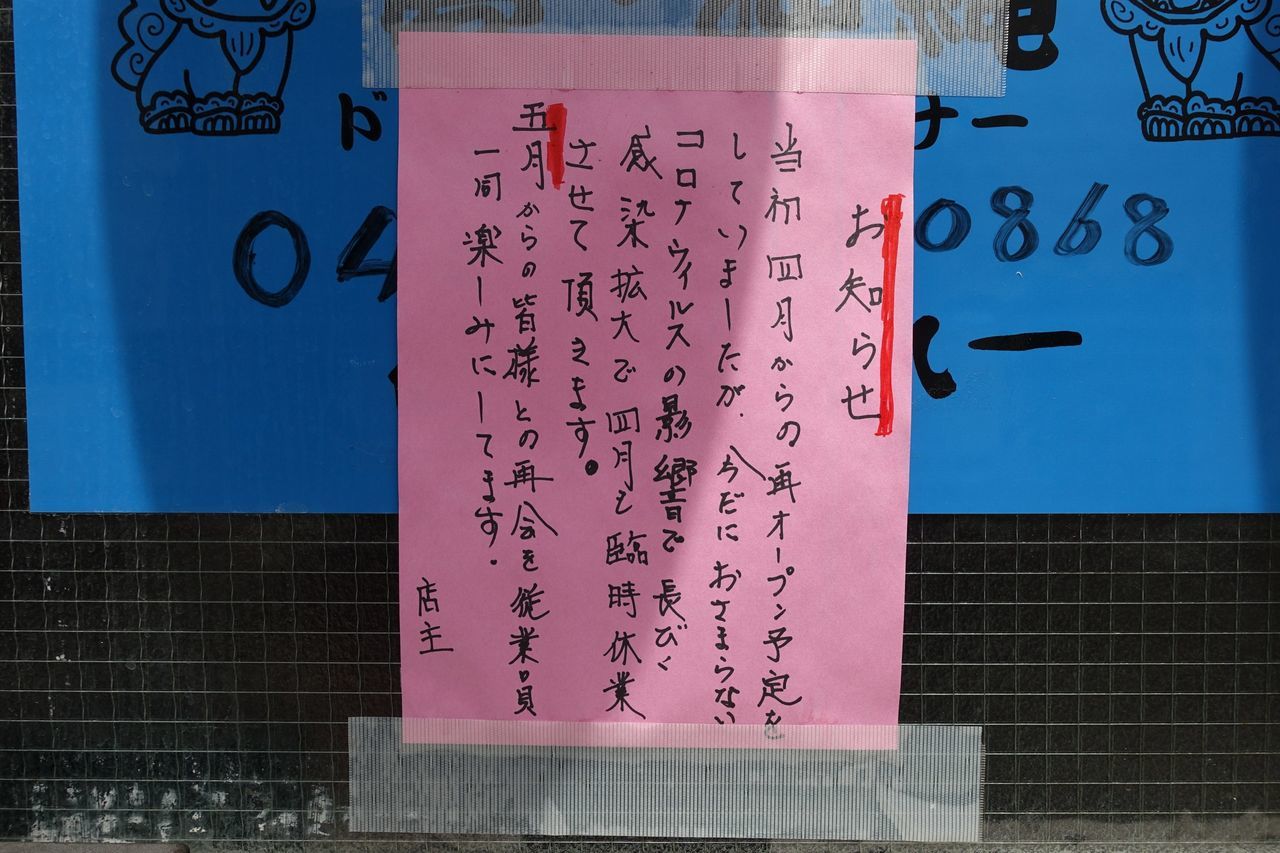 お知らせ
当初四月からの再オープン予定を
していましたが、今だにおさまらない
コロナウィルスの影響で長びく
感染拡大で四月も臨時休業
させて頂きます。
五月からの皆様との再会を従業員
一同楽しみにしてます。
店主
ド
ナー
04
0868